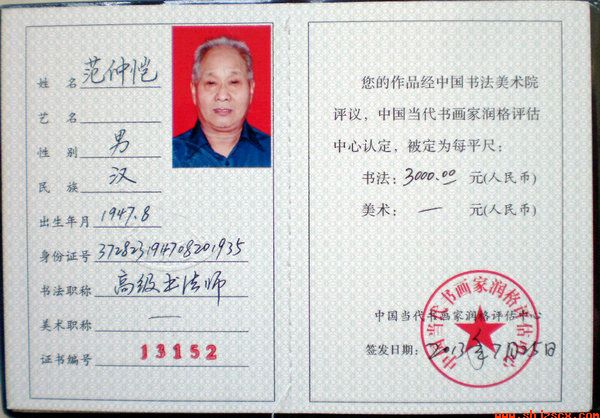 姓 名 范仲恺
艺 名
性 别 男
民 族 汉
出生年月 1947.8
身份证号 372823194708201935
书法职称 高级书法师
美术职称 一
证书编号 13152
您的作品经中国书法美术院
评议，中国当代书画家润格评估
中心认定，被定为每平尺：
书法：3000.00 元(人民币)
美术：一 元(人民币)
中国当代书画家润格评估中心
中国当代书画家润格评估中心
签发日期：2013年7月25日
www.shjzscx.com